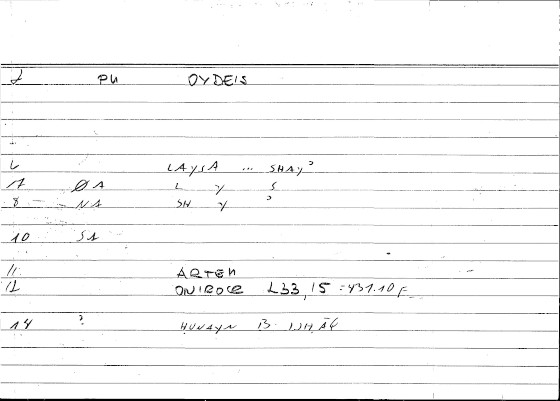 2 PH OYDEIS
6 LAYSA ... SHAYʾ
7 ØA L Y S
8 NA SH Y ʾ
10 SA
11 ARTEH
12 ONIROCR 233,15 = 431.10 F
14 ? HUNAYN B.